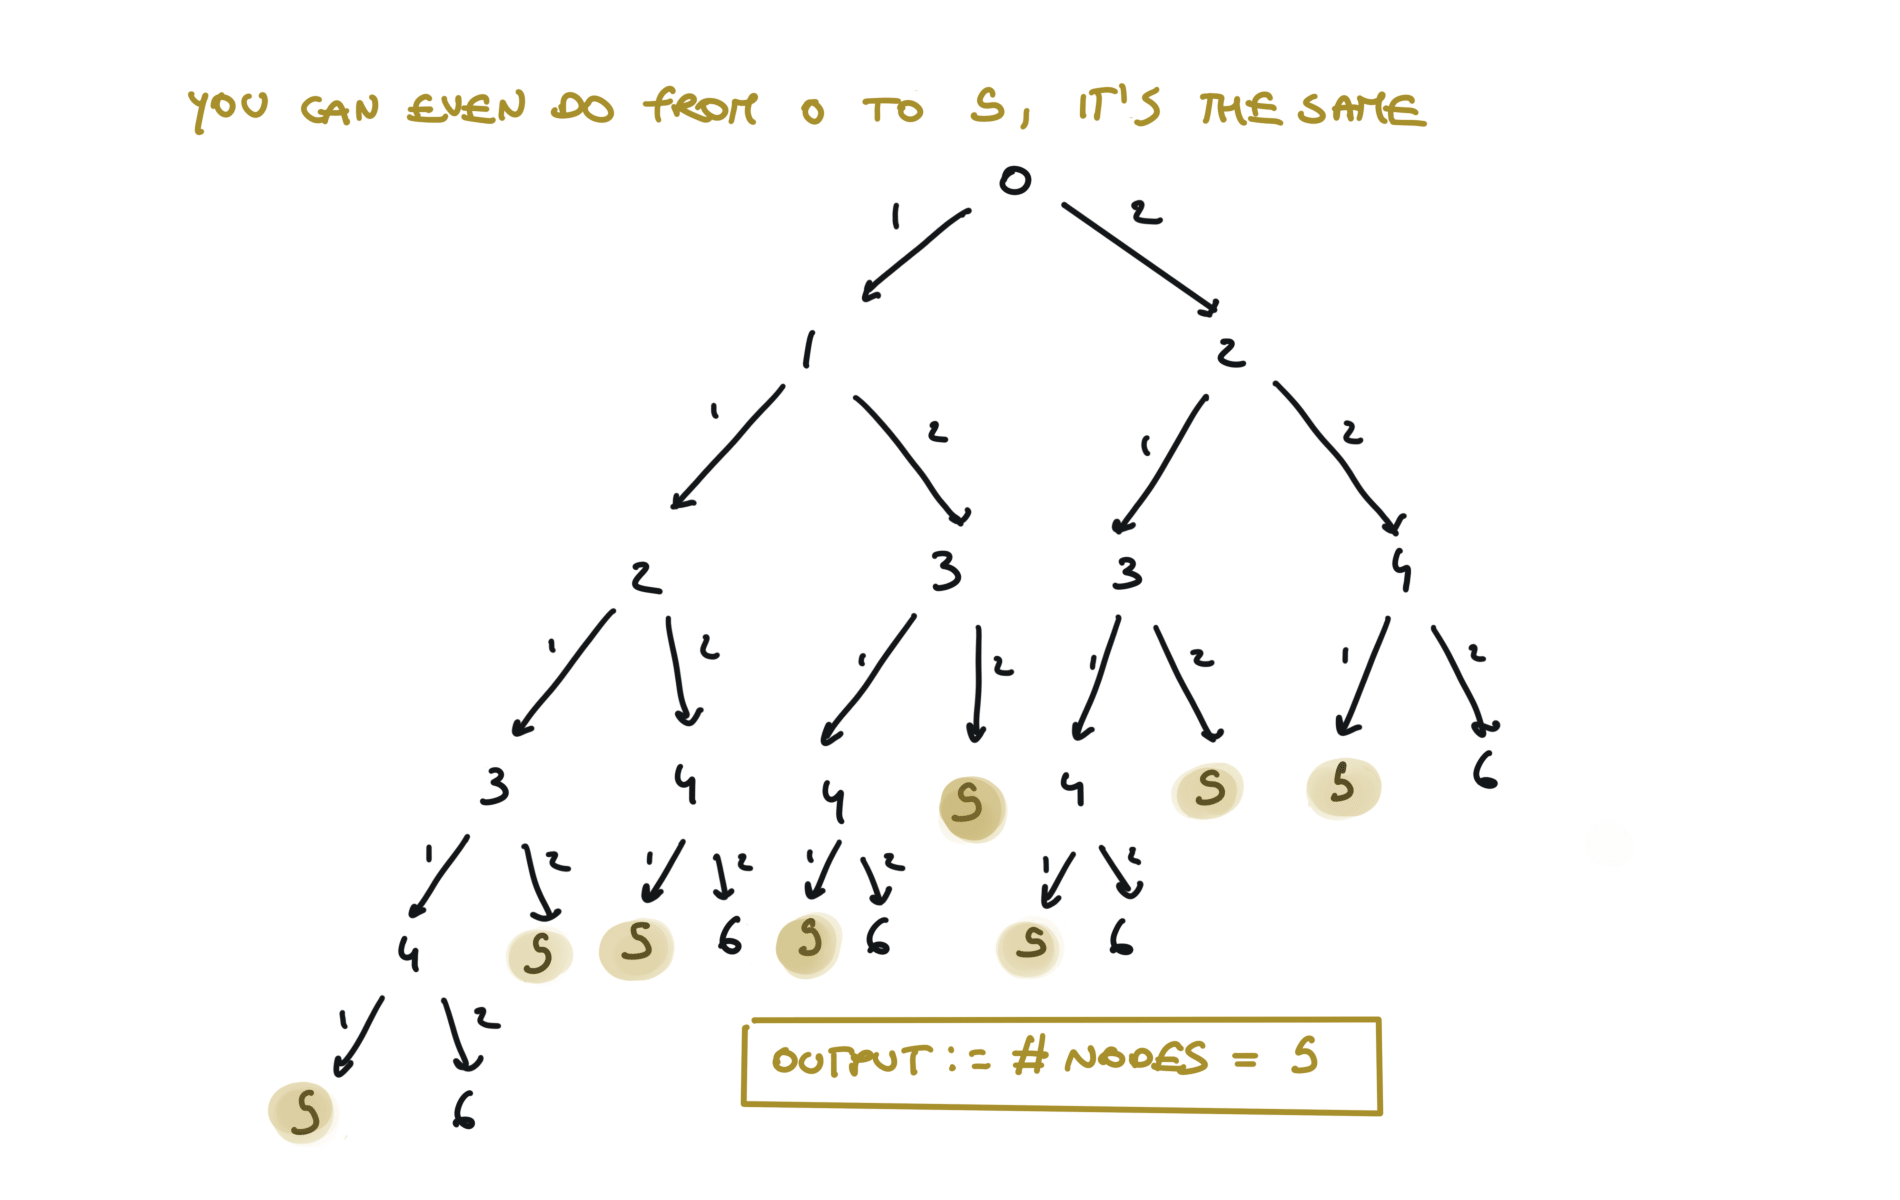 YOU CAN EVEN DO FROM 0 TO 5, IT'S THE SAME
0
1 2
1 2
1 2 1 2
2 3 3 4
1 2 1 2 1 2 1 2
3 4 4 5 4 5 5 6
1 2 1 2 1 2 1 2
4 5 5 6 5 6 5 6
1 2
5 6
OUTPUT := # NODES = 5